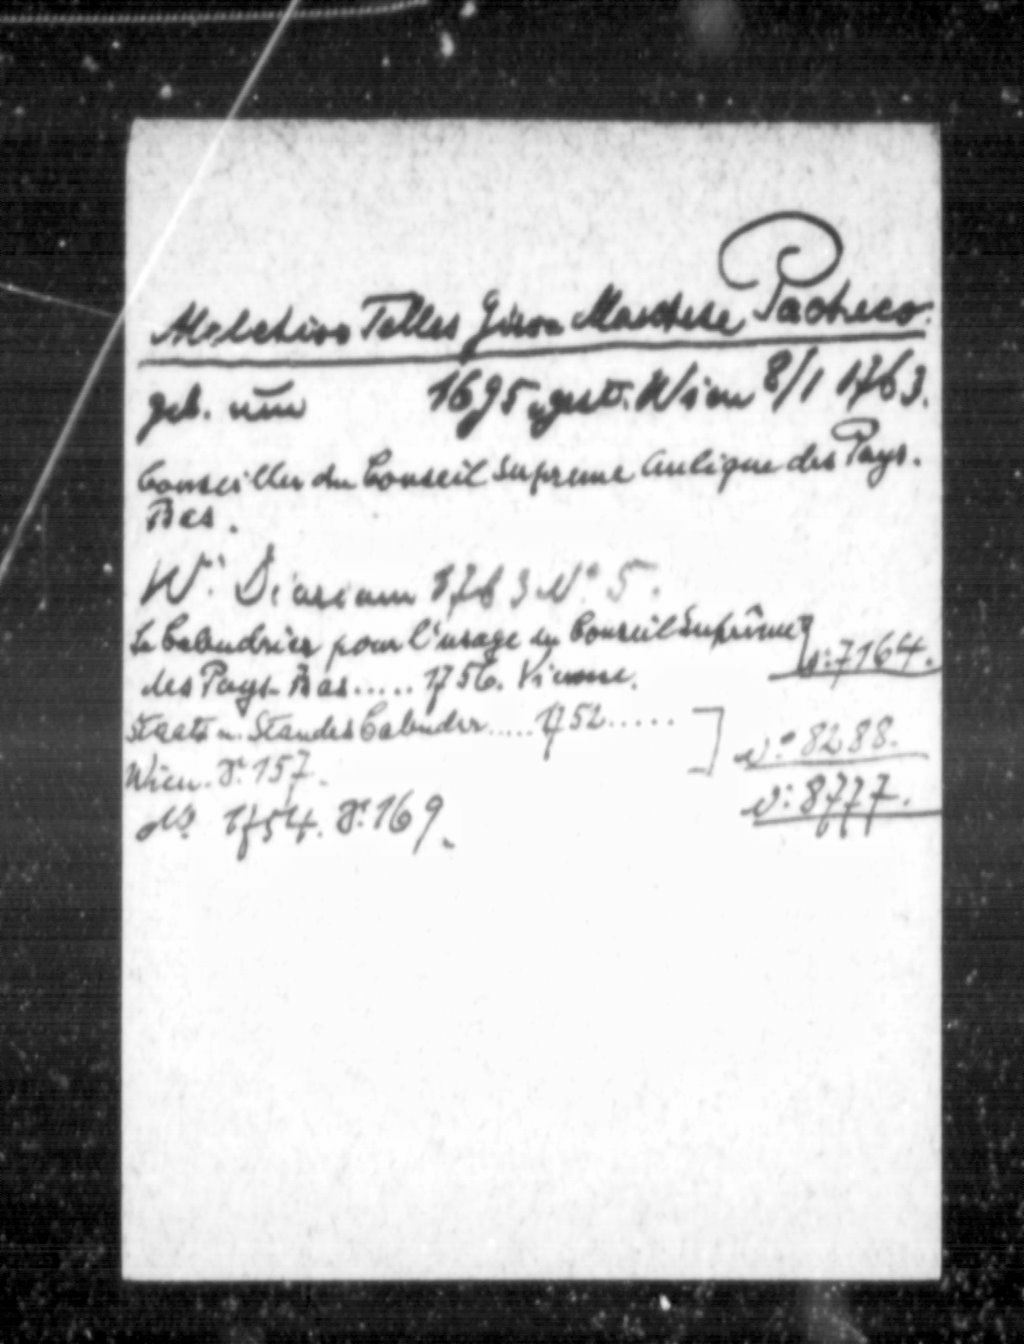 P
Melchior Telles Giron Marchese Pacheco.
geb. um 1695, gest. Wien 8/1 1763.
Conseiller du Conseil Supreme Aulique des Pays-
Bas.
W. Diarium 1763 No 5.
Le Calendrier pour l'usage du Conseil Suprême
des Pays-Bas..... 1756. Vienne. N: 7164.
Staats u. Standes Calender.....1752.....
Wien. S. 157. No 8288.
1754. S. 169. N: 8777.